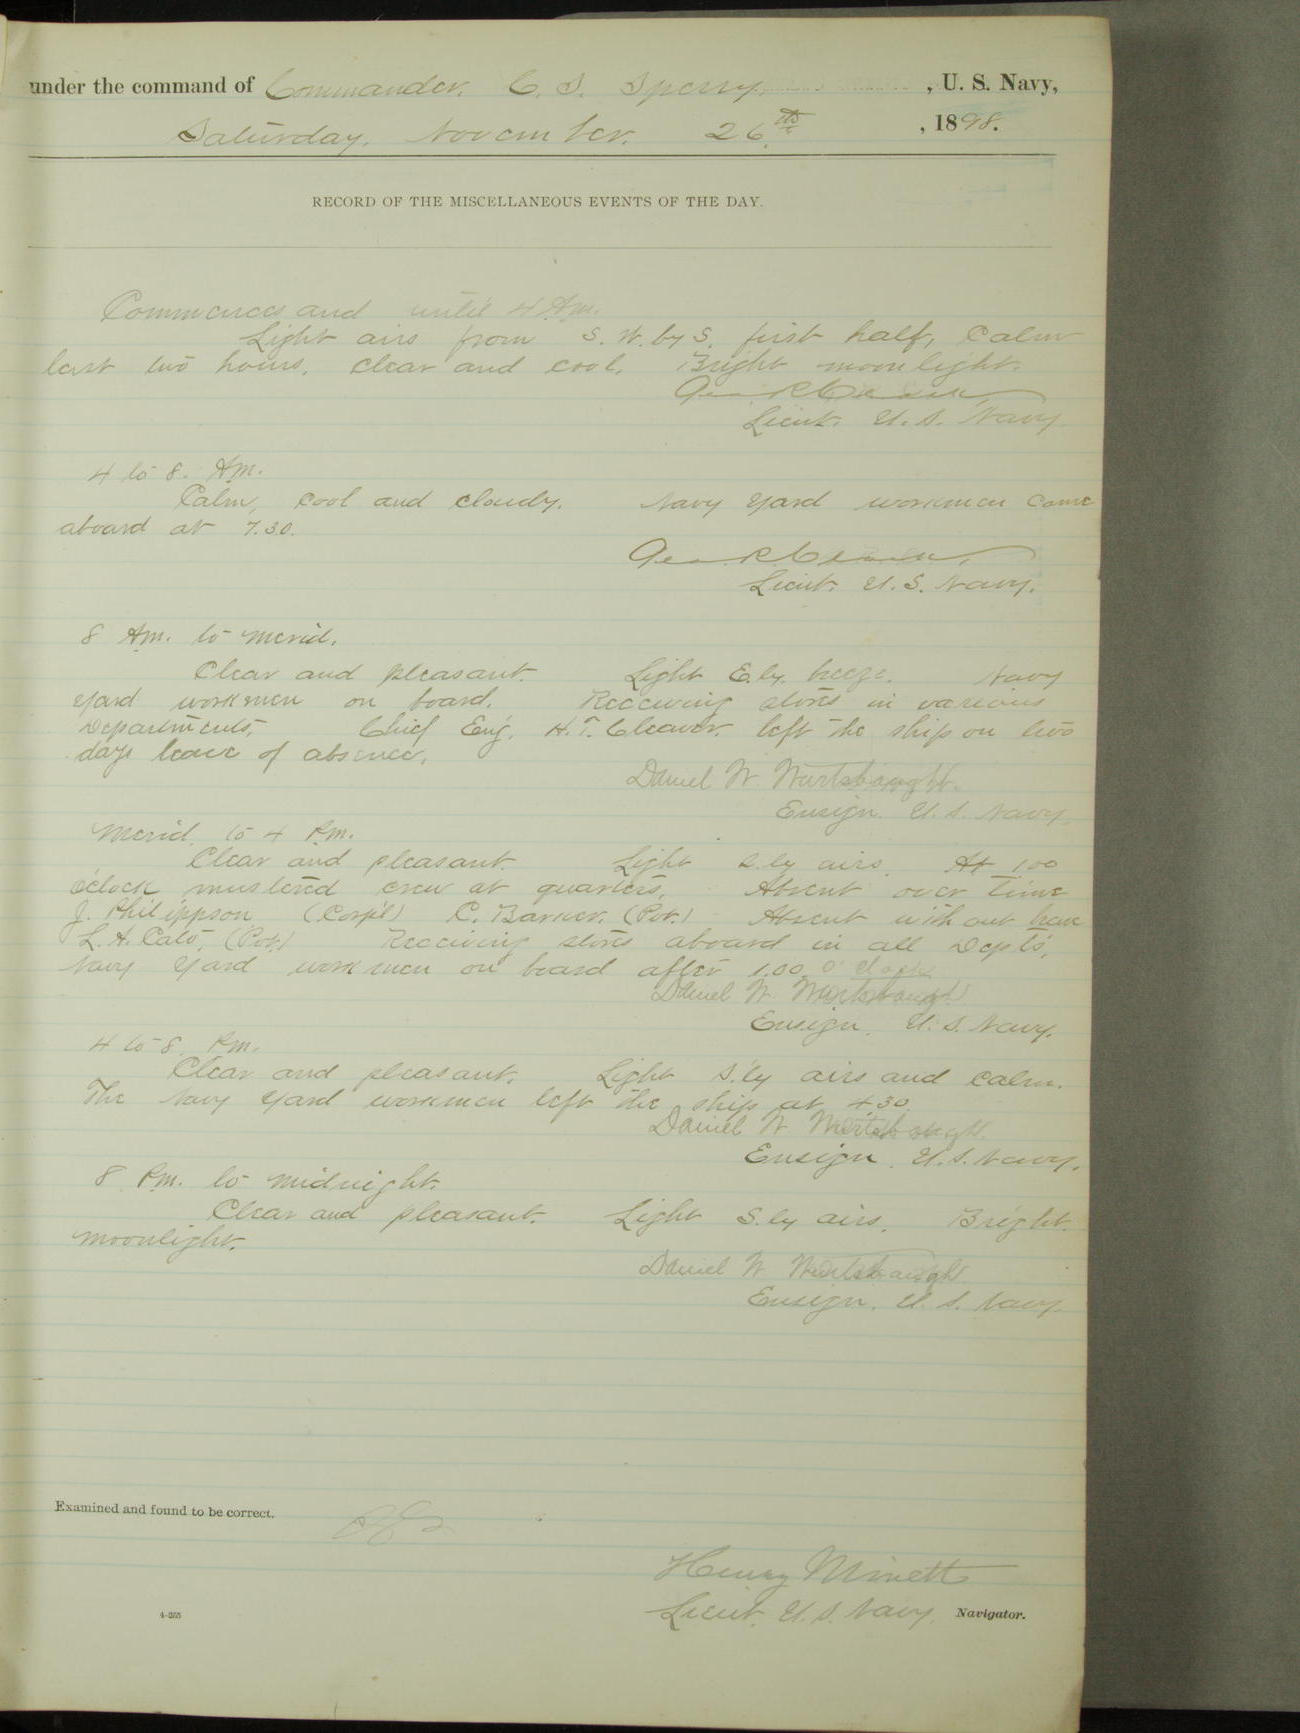 under the command of Commander. C. S. Sperry. , U. S. Navy,
Saturday, November. 26th , 1898.
RECORD OF THE MISCELLANEOUS EVENTS OF THE DAY.
Commences and until 4 Am.
Light airs from S. W. by S. first half, Calm
last two hours, clear and cool. Bright moonlight.
Geo R
Lieut. U. S. Navy
4 to 8. Am.
Calm, cool and cloudy. Navy Yard workmen came
aboard at 7.30.
Geo. R.
Lieut. U. S. Navy.
8 Am. to merid.
Clear and pleasant. Light E.ly. breeze. Navy
Yard workmen on board. Receiving stores in various
Departments. Chief Eng. H. T. Cleaver. left the ship on two
days leave of absence.
Daniel W. Wurtsbaugh.
Ensign. U. S. Navy.
Merid. to 4 Pm.
Clear and pleasant. Light S.ly airs. At 1.00
o'clock mustered crew at quarters. Absent over time
J. Philippson (Corp'l) C. Barker. (Pvt.) Absent without leave
L. A. Cato, (Pvt.) Receiving stores aboard in all Depts.
Navy Yard workmen on board after 1.00 o'clock
Daniel W Wurtsbaugh
Ensign. U. S. Navy.
4 to 8. Pm.
Clear and pleasant. Light S.ly airs and calm.
The Navy Yard workmen left the ship at 4.30
Daniel W Wurtsbaugh.
Ensign. U. S. Navy.
8 Pm. to midnight.
Clear and pleasant. Light S.ly airs. Bright.
moonlight.
Daniel W Wurtsbaugh
Ensign. U. S. Navy.
Examined and found to be correct.
Henry Minett
4-255
Lieut. U. S. Navy. Navigator.